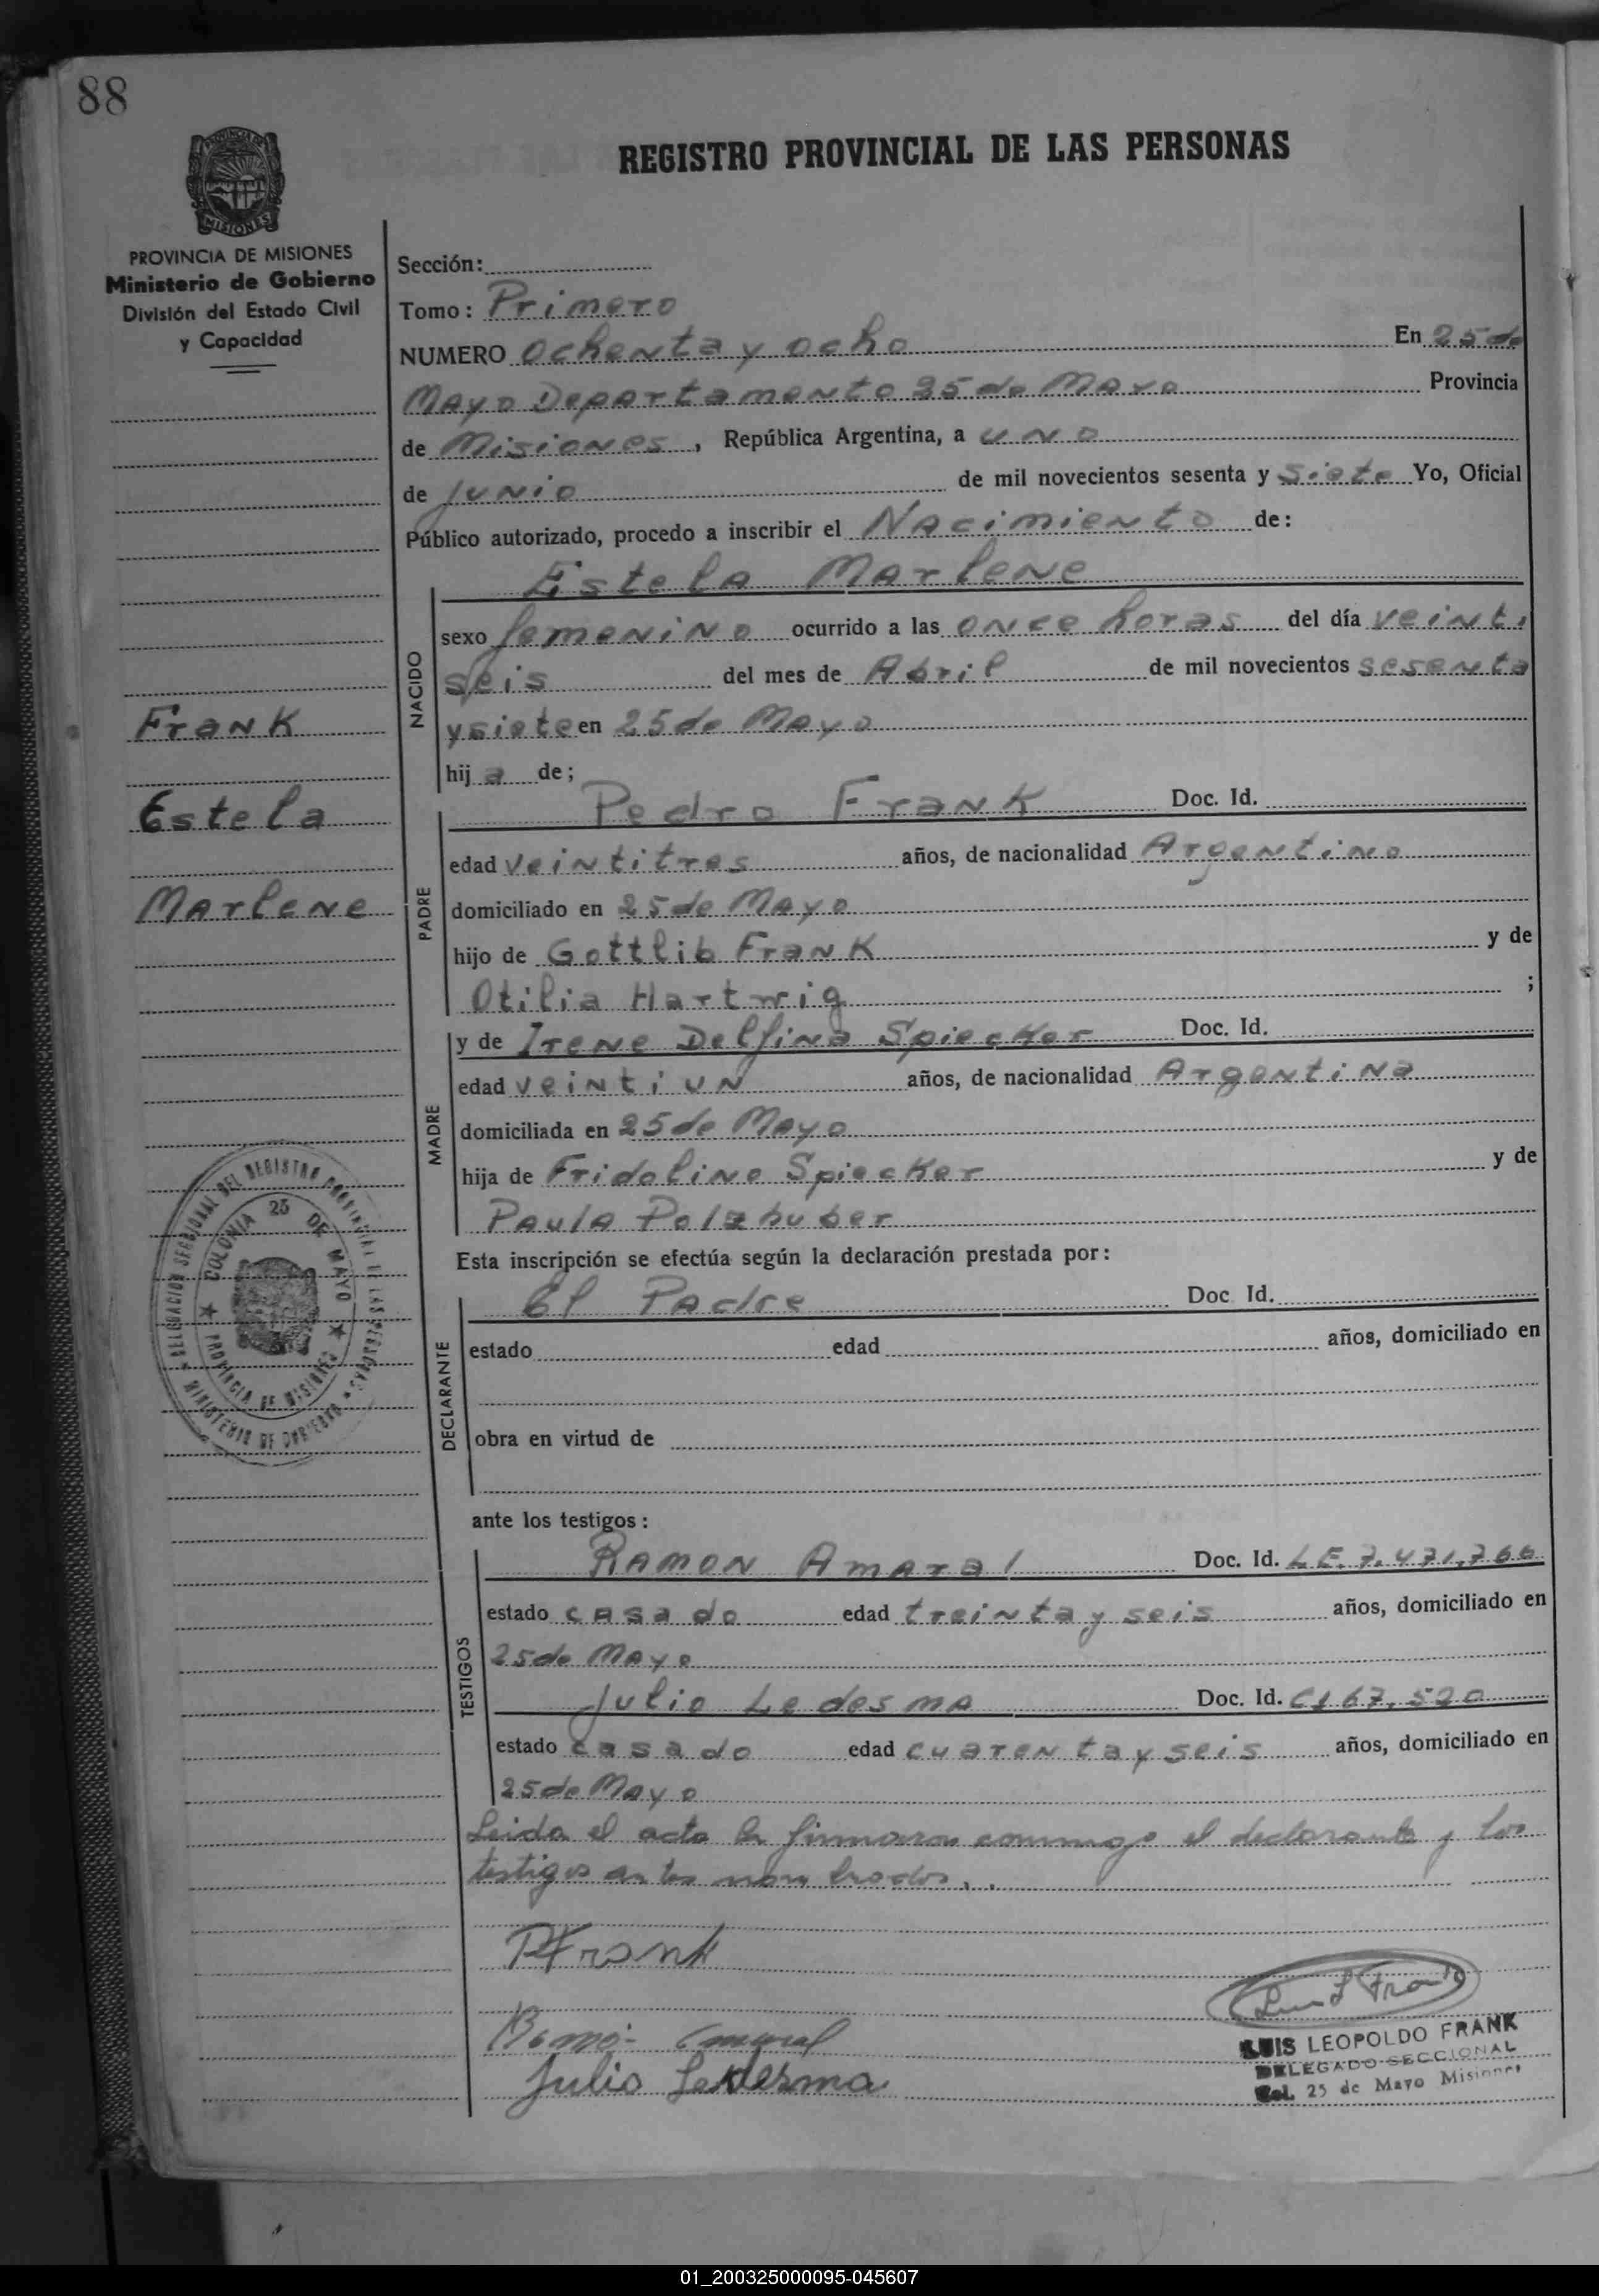 88
REGISTRO PROVINCIAL DE LAS PERSONAS
MISIONES
PROVINCIA DE MISIONES
Ministerio de Gobierno
División del Estado Civil
y Capacidad
Frank
Estela
Marlene
DELEGACION SECCIONAL DEL REGISTRO PROVINCIAL DE LAS PERSONAS
MINISTERIO DE GOBIERNO
COLONIA 25 DE MAYO
PROVINCIA DE MISIONES
Sección:
Tomo: Primero
NUMERO Ochenta y ocho En 25 de
Mayo Departamento 25 de Mayo Provincia
de Misiones, República Argentina, a uno
de Junio de mil novecientos sesenta y siete Yo, Oficial
Público autorizado, procedo a inscribir el Nacimiento de:
Estela Marlene
NACIDO
sexo femenino ocurrido a las once horas del día veinti
seis del mes de Abril de mil novecientos sesenta
y siete en 25 de Mayo
hij a de;
Pedro Frank Doc. Id.
PADRE
edad veintitres años, de nacionalidad Argentino
domiciliado en 25 de Mayo
hijo de Gottlib Frank y de
Otilia Hartwig ;
y de Irene Delfina Spiecker Doc. Id.
MADRE
edad veinti un años, de nacionalidad Argentina
domiciliada en 25 de Mayo
hija de Fridolino Spiecker y de
Paula Polzhuber
Esta inscripción se efectúa según la declaración prestada por:
El Padre Doc Id.
DECLARANTE
estado edad años, domiciliado en
obra en virtud de
ante los testigos:
Ramon Amaral Doc. Id. L.E. 7.471.766
TESTIGOS
estado casado edad treinta y seis años, domiciliado en
25 de Mayo
Julio Ledesma Doc. Id. CI 67.520
estado casado edad cuarenta y seis años, domiciliado en
25 de Mayo
Leida el acta la firmaron conmigo el declarante y los
testigos antes nombrados.
PFrank
Amaral
Julio Ledesma
Luis L Frank
LUIS LEOPOLDO FRANK
DELEGADO SECCIONAL
Col. 25 de Mayo Misiones
01_200325000095-045607